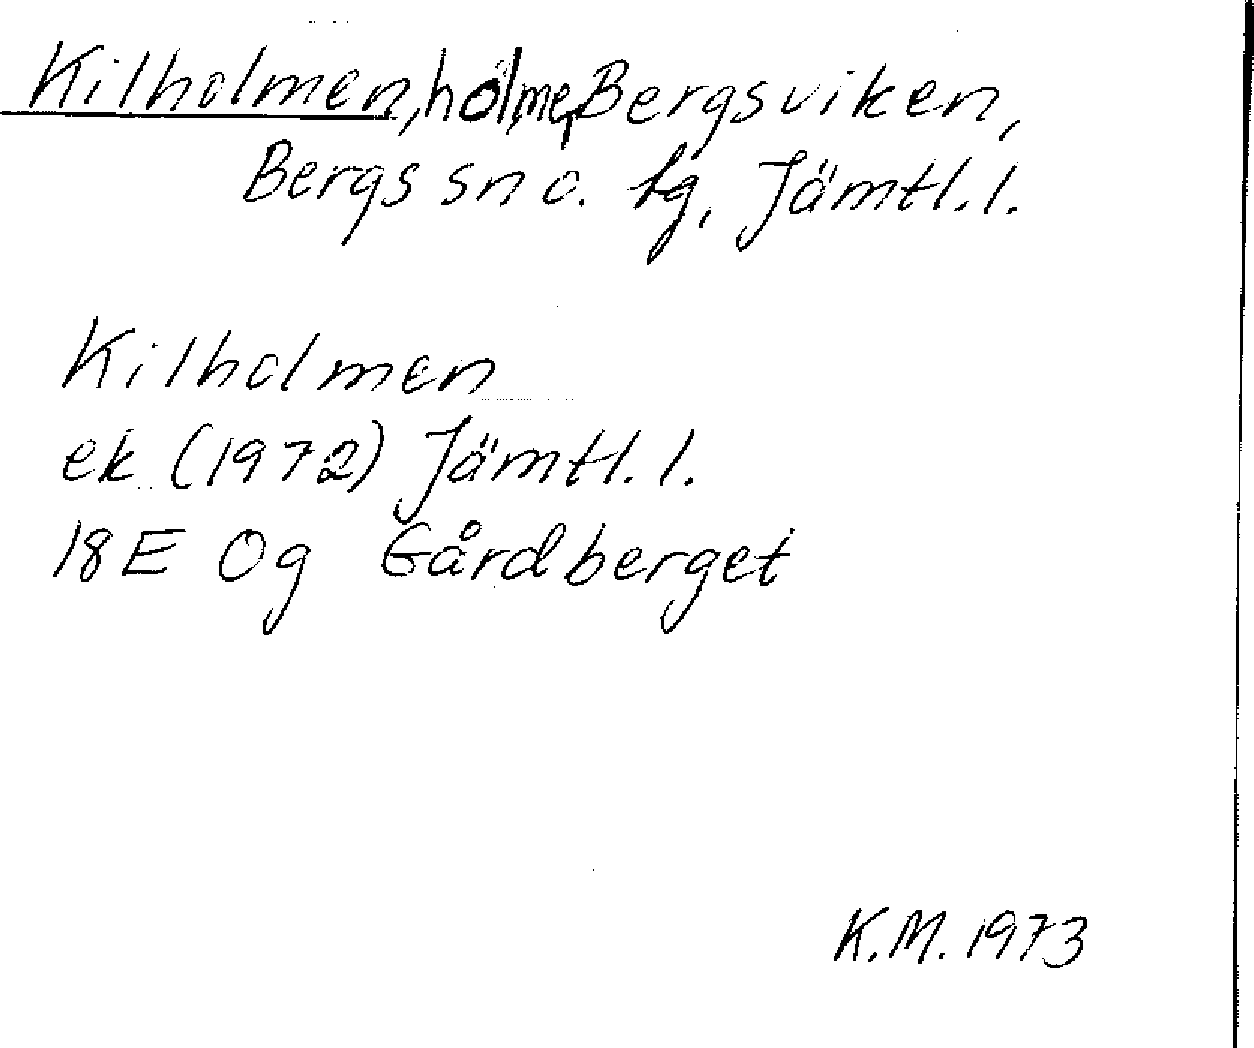 Kilholmen, holme, Bergsviken,
Bergs sn o. tg, Jämtl. l.
Kilholmen
ek (1972) Jämtl. l.
18E Og Gårdberget
K.M. 1973